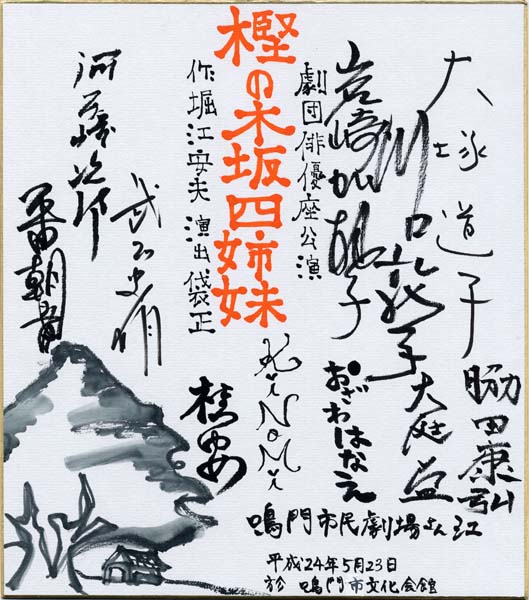 大塚道子
川口敦子
岩崎加根子
脇田康弘
大庭
おざわはなえ
劇団俳優座公演
樫の木坂四姉妹
作堀江安夫 演出袋正
KiNoMi
河原崎次郎
武正忠明
鳴門市民劇場さん江
平成24年5月23日
於 鳴門市文化会館